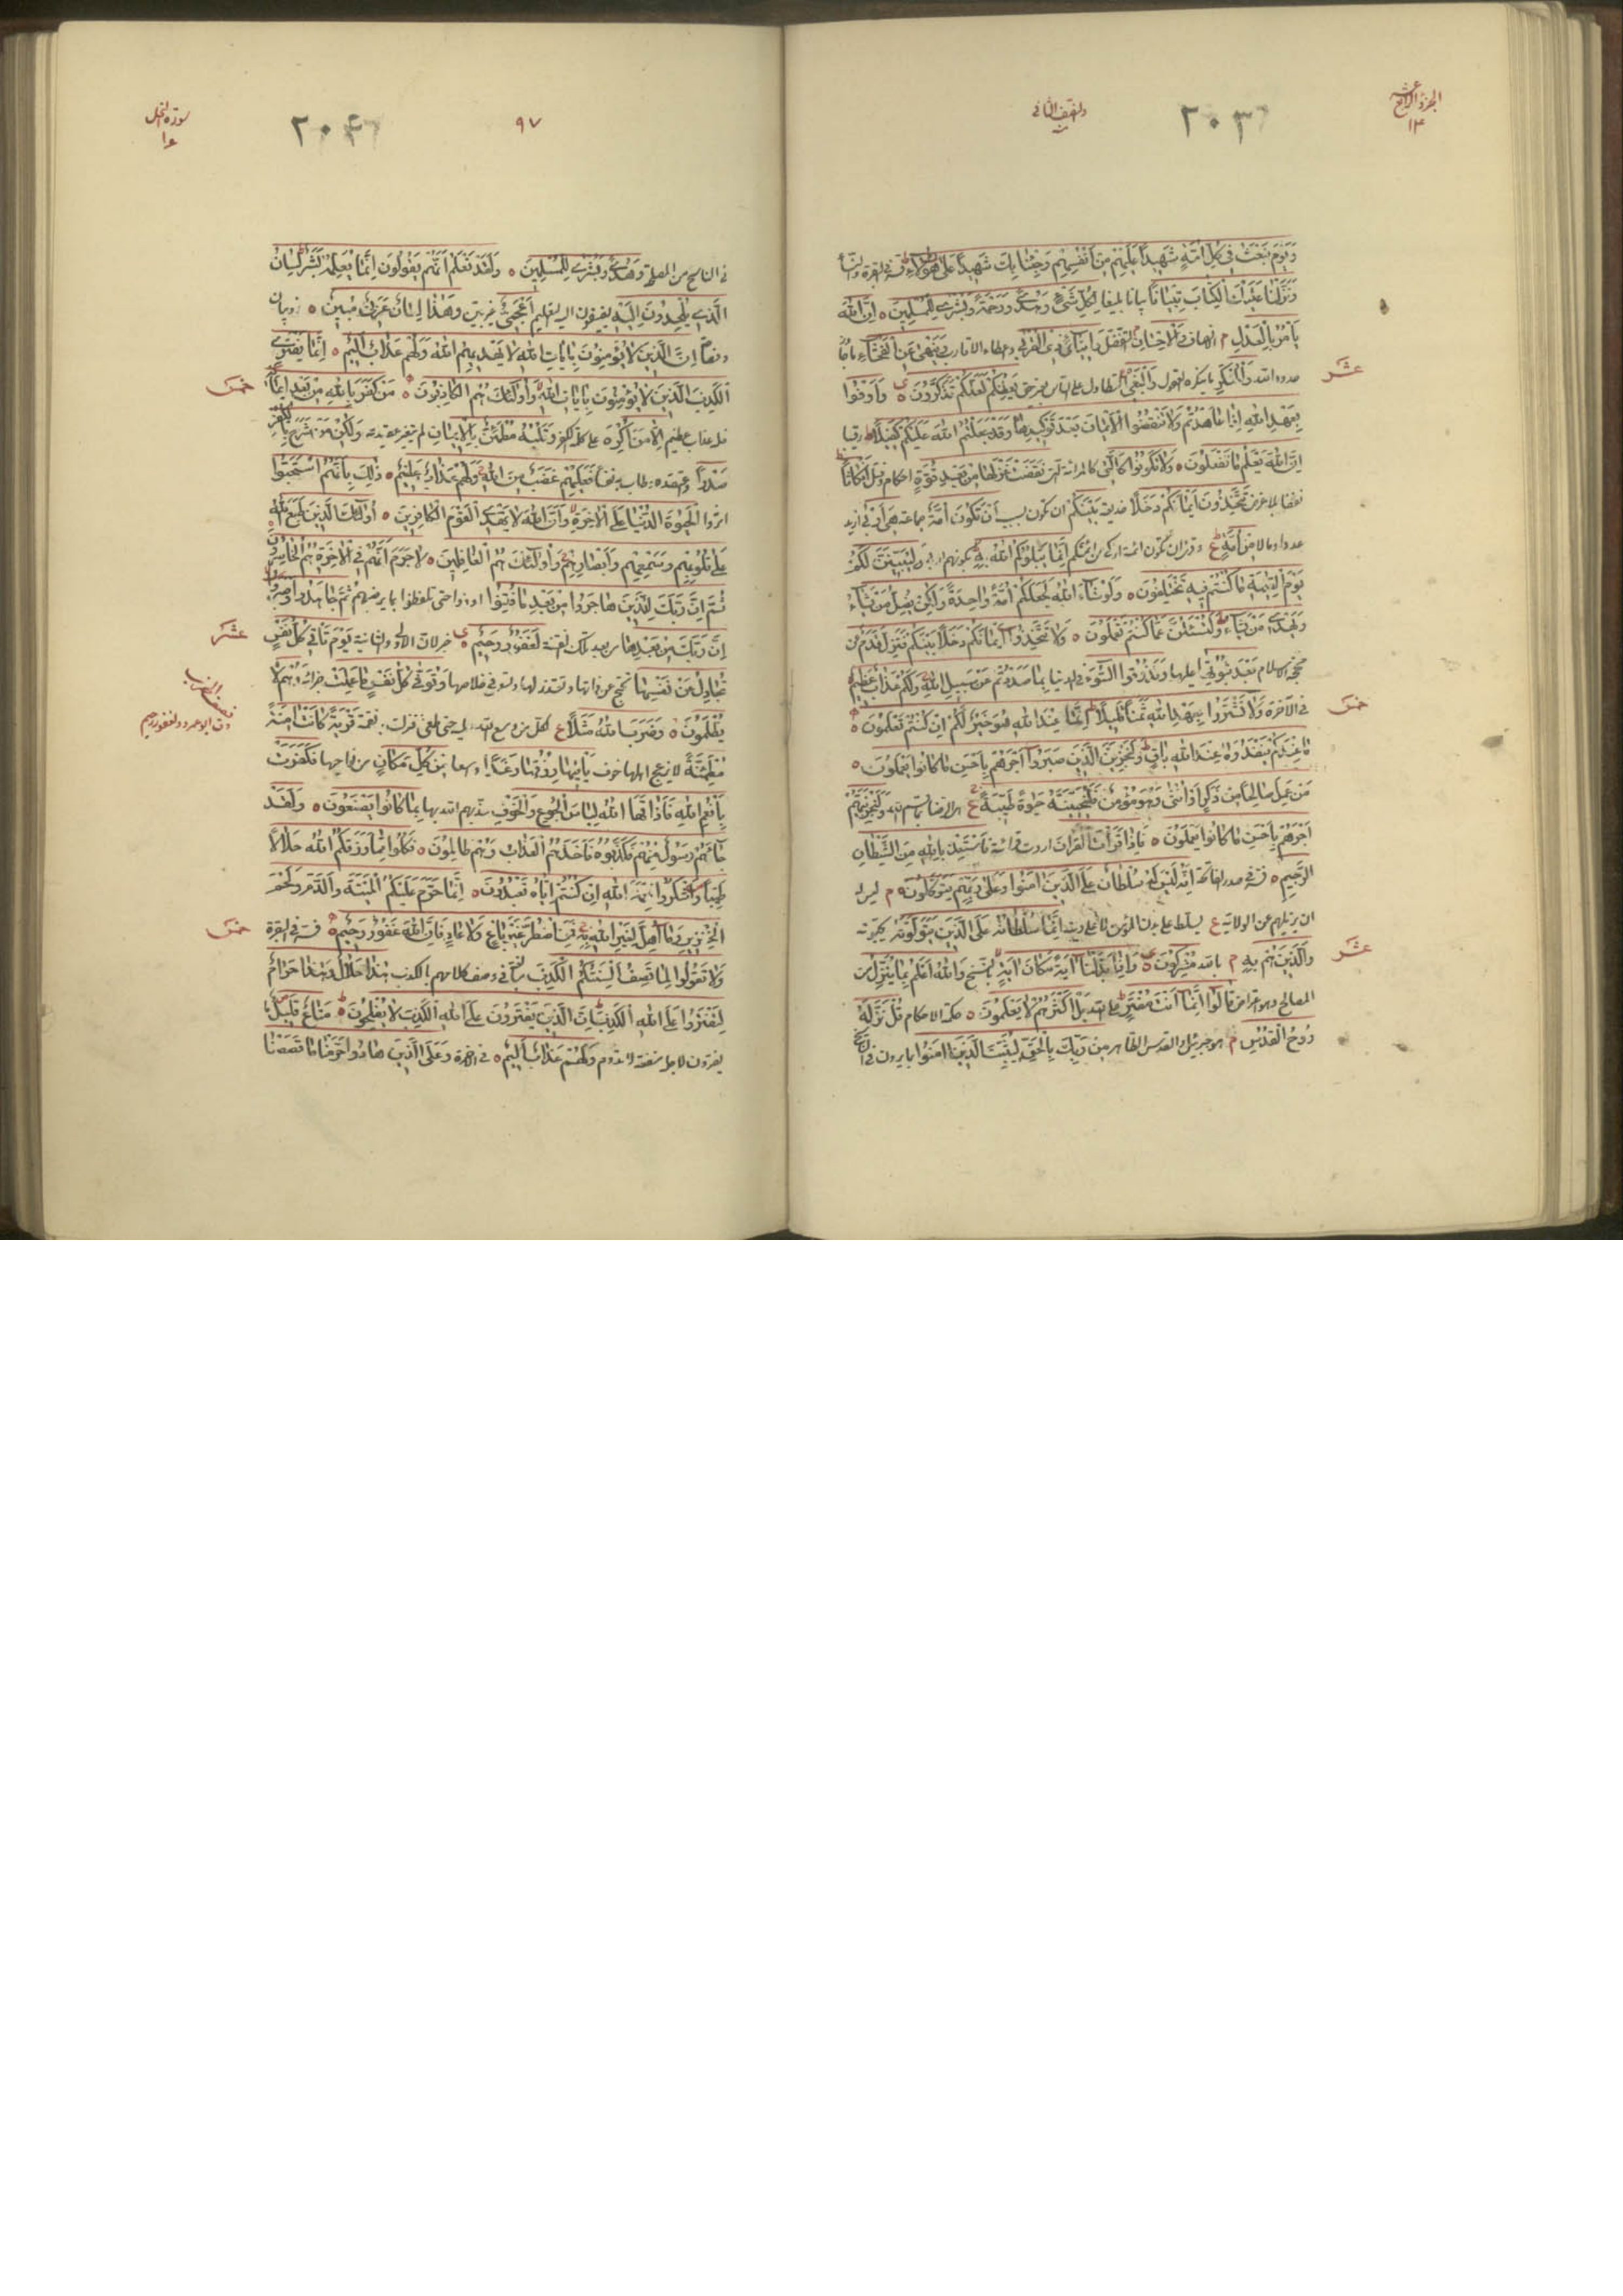 الجزء الرابع عشر
١٤
٢٠٣
وَيَوْمَ نَبْعَثُ فِي كُلِّ اُمَّةٍ شَهِيدًا عَلَيْهِمْ مِنْ اَنْفُسِهِمْ وَجِئْنَا بِكَ شَهِيدًا عَلَى هٰؤُلَاءِ
وَنَزَّلْنَا عَلَيْكَ الْكِتَابَ تِبْيَانًا بيانا بليغا لِكُلِّ شَيْءٍ وَهُدًى وَرَحْمَةً وَبُشْرَى لِلْمُسْلِمِينَ ٥ اِنَّ اللّٰهَ
يَأْمُرُ بِالْعَدْلِ م الانصاف وَالْاِحْسَانِ التفضل وَاِيتَاءِ ذِي الْقُرْبَى وَيَنْهَى عَنِ الْفَحْشَاءِ
عشر
حدود الله وَالْمُنْكَرِ وَالْبَغْيِ التطاول على الناس يَعِظُكُمْ لَعَلَّكُمْ تَذَكَّرُونَ ٥ وَاَوْفُوا
بِعَهْدِ اللّٰهِ اِذَا عَاهَدْتُمْ وَلَا تَنْقُضُوا الْاَيْمَانَ بَعْدَ تَوْكِيدِهَا وَقَدْ جَعَلْتُمُ اللّٰهَ عَلَيْكُمْ كَفِيلًا رقيبا
اِنَّ اللّٰهَ يَعْلَمُ مَا تَفْعَلُونَ ٥ وَلَا تَكُونُوا كَالَّتِي كالمرأة التي نَقَضَتْ غَزْلَهَا مِنْ بَعْدِ قُوَّةٍ احكام وفتل اَنْكَاثًا
تَتَّخِذُونَ اَيْمَانَكُمْ دَخَلًا بَيْنَكُمْ اَنْ تَكُونَ اُمَّةٌ جماعة هِيَ اَرْبَى ازيد
عددا ومالا مِنْ اُمَّةٍ اِنَّمَا يَبْلُوكُمُ اللّٰهُ بِهِ وَلَيُبَيِّنَنَّ لَكُمْ
يَوْمَ الْقِيٰمَةِ مَا كُنْتُمْ فِيهِ تَخْتَلِفُونَ ٥ وَلَوْ شَاءَ اللّٰهُ لَجَعَلَكُمْ اُمَّةً وَاحِدَةً وَلَكِنْ يُضِلُّ مَنْ يَشَاءُ
وَيَهْدِي مَنْ يَشَاءُ وَلَتُسْئَلُنَّ عَمَّا كُنْتُمْ تَعْمَلُونَ ٥ وَلَا تَتَّخِذُوا اَيْمَانَكُمْ دَخَلًا بَيْنَكُمْ فَتَزِلَّ قَدَمٌ عن
محجة الاسلام بَعْدَ ثُبُوتِهَا عليها وَتَذُوقُوا السُّوءَ في الدنيا بِمَا صَدَدْتُمْ عَنْ سَبِيلِ اللّٰهِ وَلَكُمْ عَذَابٌ عَظِيمٌ
خمس
في الآخرة وَلَا تَشْتَرُوا بِعَهْدِ اللّٰهِ ثَمَنًا قَلِيلًا اِنَّمَا عِنْدَ اللّٰهِ هُوَ خَيْرٌ لَكُمْ اِنْ كُنْتُمْ تَعْلَمُونَ ٥
مَا عِنْدَكُمْ يَنْفَدُ وَمَا عِنْدَ اللّٰهِ بَاقٍ وَلَنَجْزِيَنَّ الَّذِينَ صَبَرُوا اَجْرَهُمْ بِاَحْسَنِ مَا كَانُوا يَعْمَلُونَ ٥
مَنْ عَمِلَ صَالِحًا مِنْ ذَكَرٍ اَوْ اُنْثَى وَهُوَ مُؤْمِنٌ فَلَنُحْيِيَنَّهُ حَيٰوةً طَيِّبَةً ع وَلَنَجْزِيَنَّهُمْ
اَجْرَهُمْ بِاَحْسَنِ مَا كَانُوا يَعْمَلُونَ ٥ فَاِذَا قَرَأْتَ الْقُرْاٰنَ اردت قرائته فَاسْتَعِذْ بِاللّٰهِ مِنَ الشَّيْطَانِ
الرَّجِيمِ ٥ فسر في صدر الفاتحة اِنَّهُ لَيْسَ لَهُ سُلْطَانٌ عَلَى الَّذِينَ اٰمَنُوا وَعَلَى رَبِّهِمْ يَتَوَكَّلُونَ م ليس له
ان يزيلهم عن الولاية ع يسلط على بدن المؤمن لا على دينه اِنَّمَا سُلْطَانُهُ عَلَى الَّذِينَ يَتَوَلَّوْنَهُ يحبونه
عشر
وَالَّذِينَ هُمْ بِهِ م بالله مُشْرِكُونَ ٥ وَاِذَا بَدَّلْنَا اٰيَةً مَكَانَ اٰيَةٍ بنسخ وَاللّٰهُ اَعْلَمُ بِمَا يُنَزِّلُ من
المصالح قَالُوا اِنَّمَا اَنْتَ مُفْتَرٍ على الله بَلْ اَكْثَرُهُمْ لَا يَعْلَمُونَ ٥ حكمة الاحكام قُلْ نَزَّلَهُ
رُوحُ الْقُدُسِ م هو جبرئيل والقدس الطاهر مِنْ رَبِّكَ بِالْحَقِّ لِيُثَبِّتَ الَّذِينَ اٰمَنُوا بما يرون
سورة النحل
١٦
٢٠٤
٩٧
في الناسخ من المصلحة وَهُدًى وَبُشْرَى لِلْمُسْلِمِينَ ٥ وَلَقَدْ نَعْلَمُ اَنَّهُمْ يَقُولُونَ اِنَّمَا يُعَلِّمُهُ بَشَرٌ لِسَانُ
الَّذِي يُلْحِدُونَ اِلَيْهِ يضيفون اليه التعليم اَعْجَمِيٌّ غير بيّن وَهٰذَا لِسَانٌ عَرَبِيٌّ مُبِينٌ ٥ ذو بيان
اِنَّ الَّذِينَ لَا يُؤْمِنُونَ بِاٰيَاتِ اللّٰهِ لَا يَهْدِيهِمُ اللّٰهُ وَلَهُمْ عَذَابٌ اَلِيمٌ ٥ اِنَّمَا يَفْتَرِي
خمس
الْكَذِبَ الَّذِينَ لَا يُؤْمِنُونَ بِاٰيَاتِ اللّٰهِ وَاُولٰئِكَ هُمُ الْكَاذِبُونَ ٥ مَنْ كَفَرَ بِاللّٰهِ مِنْ بَعْدِ اِيمَانِهِ
فله عذاب عظيم اِلَّا مَنْ اُكْرِهَ على كلمة الكفر وَقَلْبُهُ مُطْمَئِنٌّ بِالْاِيمَانِ لم يتغير عقيدته وَلٰكِنْ مَنْ شَرَحَ بِالْكُفْرِ
صَدْرًا طاب به نفسا فَعَلَيْهِمْ غَضَبٌ مِنَ اللّٰهِ وَلَهُمْ عَذَابٌ عَظِيمٌ ٥ ذٰلِكَ بِاَنَّهُمُ اسْتَحَبُّوا
اثروا الْحَيٰوةَ الدُّنْيَا عَلَى الْاٰخِرَةِ وَاَنَّ اللّٰهَ لَا يَهْدِي الْقَوْمَ الْكَافِرِينَ ٥ اُولٰئِكَ الَّذِينَ طَبَعَ اللّٰهُ
عَلَى قُلُوبِهِمْ وَسَمْعِهِمْ وَاَبْصَارِهِمْ وَاُولٰئِكَ هُمُ الْغَافِلُونَ ٥ لَا جَرَمَ اَنَّهُمْ فِي الْاٰخِرَةِ هُمُ الْخَاسِرُونَ
ثُمَّ اِنَّ رَبَّكَ لِلَّذِينَ هَاجَرُوا مِنْ بَعْدِ مَا فُتِنُوا اوذوا حتى تلفظوا بما يرضيهم ثُمَّ جَاهَدُوا وَصَبَرُوا
عشر
اِنَّ رَبَّكَ مِنْ بَعْدِهَا من بعد تلك الفتنة لَغَفُورٌ رَحِيمٌ ٥ خبر لان الاولى والثانية يَوْمَ تَأْتِي كُلُّ نَفْسٍ
تُجَادِلُ عَنْ نَفْسِهَا تحتج عن ذاتها وتعتذر لها وتسعى في خلاصها وَتُوَفَّى كُلُّ نَفْسٍ مَا عَمِلَتْ جزائه وَهُمْ لَا
نصف الحزب
يُظْلَمُونَ ٥ وَضَرَبَ اللّٰهُ مَثَلًا قَرْيَةً كَانَتْ اٰمِنَةً
مُطْمَئِنَّةً لا يزعج اهلها خوف يَأْتِيهَا رِزْقُهَا رَغَدًا واسعا مِنْ كُلِّ مَكَانٍ من نواحيها فَكَفَرَتْ
بِاَنْعُمِ اللّٰهِ فَاَذَاقَهَا اللّٰهُ لِبَاسَ الْجُوعِ وَالْخَوْفِ بِمَا كَانُوا يَصْنَعُونَ ٥ وَلَقَدْ
جَاءَهُمْ رَسُولٌ مِنْهُمْ فَكَذَّبُوهُ فَاَخَذَهُمُ الْعَذَابُ وَهُمْ ظَالِمُونَ ٥ فَكُلُوا مِمَّا رَزَقَكُمُ اللّٰهُ حَلَالًا
طَيِّبًا وَاشْكُرُوا نِعْمَةَ اللّٰهِ اِنْ كُنْتُمْ اِيَّاهُ تَعْبُدُونَ ٥ اِنَّمَا حَرَّمَ عَلَيْكُمُ الْمَيْتَةَ وَالدَّمَ وَلَحْمَ
خمس
الْخِنْزِيرِ وَمَا اُهِلَّ لِغَيْرِ اللّٰهِ بِهِ فَمَنِ اضْطُرَّ غَيْرَ بَاغٍ وَلَا عَادٍ فَاِنَّ اللّٰهَ غَفُورٌ رَحِيمٌ ٥ فسر في البقرة
وَلَا تَقُولُوا لِمَا تَصِفُ اَلْسِنَتُكُمُ الْكَذِبَ في وصف كلامهم بالكذب هٰذَا حَلَالٌ وَهٰذَا حَرَامٌ
لِتَفْتَرُوا عَلَى اللّٰهِ الْكَذِبَ اِنَّ الَّذِينَ يَفْتَرُونَ عَلَى اللّٰهِ الْكَذِبَ لَا يُفْلِحُونَ ٥ مَتَاعٌ قَلِيلٌ
يفترون لاجله منفعة لا تدوم وَلَهُمْ عَذَابٌ اَلِيمٌ ٥ في الآخرة وَعَلَى الَّذِينَ هَادُوا حَرَّمْنَا مَا قَصَصْنَا